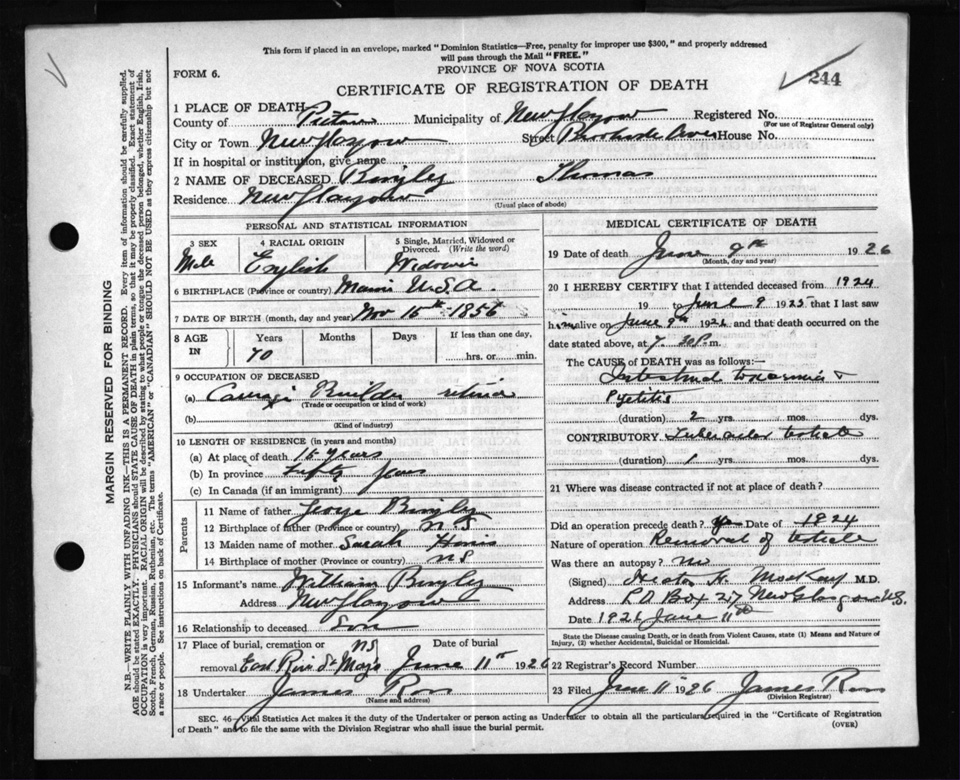 This form if placed in an envelope, marked "Dominion Statistics—Free, penalty for improper use $300," and properly addressed
will pass through the Mail "FREE."
PROVINCE OF NOVA SCOTIA
FORM 6.
244
CERTIFICATE OF REGISTRATION OF DEATH
1 PLACE OF DEATH
County of Pictou Municipality of New Glasgow Registered No.
(For use of Registrar General only)
City or Town New Glasgow Street House No.
If in hospital or institution, give name
2 NAME OF DECEASED Bingley Thomas
Residence New Glasgow
(Usual place of abode)
PERSONAL AND STATISTICAL INFORMATION
3 SEX 4 RACIAL ORIGIN 5 Single, Married, Widowed or Divorced. (Write the word)
Male English Widower
6 BIRTHPLACE (Province or country) U.S.A.
7 DATE OF BIRTH (month, day and year) Nov 15th 1856
8 AGE IN Years Months Days If less than one day,
70 hrs. or min.
9 OCCUPATION OF DECEASED
(a) Carriage Builder retired
(Trade or occupation or kind of work)
(b)
(Kind of industry)
10 LENGTH OF RESIDENCE (in years and months)
(a) At place of death 15 years
(b) In province Fifty years
(c) In Canada (if an immigrant)
Parents
11 Name of father George Bingley
12 Birthplace of father (Province or country) N S
13 Maiden name of mother Sarah
14 Birthplace of mother (Province or country) N S
15 Informant's name William Bingley
Address New Glasgow
16 Relationship to deceased Son
17 Place of burial, cremation or removal East River St Marys NS Date of burial June 11th 1926
18 Undertaker James Ross
(Name and address)
MEDICAL CERTIFICATE OF DEATH
19 Date of death June 9th 1926
(Month, day and year)
20 I HEREBY CERTIFY that I attended deceased from 1924
19 to June 9 1925 that I last saw
him alive on June 9th 1926 and that death occurred on
date stated above, at 7.30 P.m.
The CAUSE of DEATH was as follows:—
Intestinal toxaemia &
Pyelitis
(duration) 2 yrs. mos. dys.
CONTRIBUTORY Tubercular testicle
(duration) 1 yrs. mos. dys.
21 Where was disease contracted if not at place of death?
Did an operation precede death? Yes Date of 1924
Nature of operation Removal of testicle
Was there an autopsy? no
(Signed) H. MacKay M.D.
Address P.O. Box 217 New Glasgow N.S.
Date 1926 June 11th
State the Disease causing Death, or in death from Violent Causes, state (1) Means and Nature of
Injury, (2) whether Accidental, Suicidal or Homicidal.
22 Registrar's Record Number
23 Filed June 11 1926 James Ross
(Division Registrar)
SEC. 46—Vital Statistics Act makes it the duty of the Undertaker or person acting as Undertaker to obtain all the particulars required in the "Certificate of Registration
of Death" and to file the same with the Division Registrar who shall issue the burial permit.
(OVER)
MARGIN RESERVED FOR BINDING
N.B.—WRITE PLAINLY WITH UNFADING INK—THIS IS A PERMANENT RECORD. Every item of information should be carefully supplied.
AGE should be stated EXACTLY. PHYSICIANS should STATE CAUSE OF DEATH in plain terms, so that it may be properly classified. Exact statement of
OCCUPATION is very important. RACIAL ORIGIN will be described by stating to what people or tongue the deceased person belonged, whether English, Irish,
Scotch, French, German, Russian, Ruthenian, etc. The terms "AMERICAN" or "CANADIAN" SHOULD NOT BE USED as they express citizenship but not
a race or people. See instructions on back of Certificate.